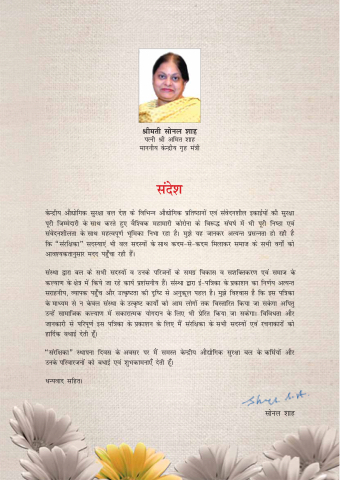 श्रीमती सोनल शाह
पत्नी श्री अमित शाह
माननीय केन्द्रीय गृह मंत्री
संदेश
केन्द्रीय औद्योगिक सुरक्षा बल देश के विभिन्न औद्योगिक प्रतिष्ठानों एवं संवेदनशील इकाईयों की सुरक्षा
पूरी जिम्मेदारी के साथ करते हुए वैश्विक महामारी कोरोना के विरूद्ध संघर्ष में भी पूरी निष्ठा एवं
संवेदनशीलता के साथ महत्वपूर्ण भूमिका निभा रहा है। मुझे यह जानकर अत्यन्त प्रसन्नता हो रही है
कि "संरक्षिका" सदस्याएं भी बल सदस्यों के साथ कदम-से-कदम मिलाकर समाज के सभी वर्गों को
आवश्यकतानुसार मदद पहुँचा रही हैं।
संस्था द्वारा बल के सभी सदस्यों व उनके परिजनों के समग्र विकास व सशक्तिकरण एवं समाज के
कल्याण के क्षेत्र में किये जा रहे कार्य प्रशंसनीय हैं। संस्था द्वारा ई-पत्रिका के प्रकाशन का निर्णय अत्यन्त
सराहनीय, व्यापक पहुँच और उत्कृष्टता की दृष्टि से अनुकूल पहल है। मुझे विश्वास है कि इस पत्रिका
के माध्यम से न केवल संस्था के उत्कृष्ट कार्यों को आम लोगों तक विस्तारित किया जा सकेगा अपितु
उन्हें सामाजिक कल्याण में सकारात्मक योगदान के लिए भी प्रेरित किया जा सकेगा। विविधता और
जानकारी से परिपूर्ण इस पत्रिका के प्रकाशन के लिए मैं संरक्षिका के सभी सदस्यों एवं रचनाकारों को
हार्दिक बधाई देती हूँ।
"संरक्षिका" स्थापना दिवस के अवसर पर मैं समस्त केन्द्रीय औद्योगिक सुरक्षा बल के कर्मियों और
उनके परिवारजनों को बधाई एवं शुभकामनाएँ देती हूँ।
धन्यवाद सहित।
सोनल शाह